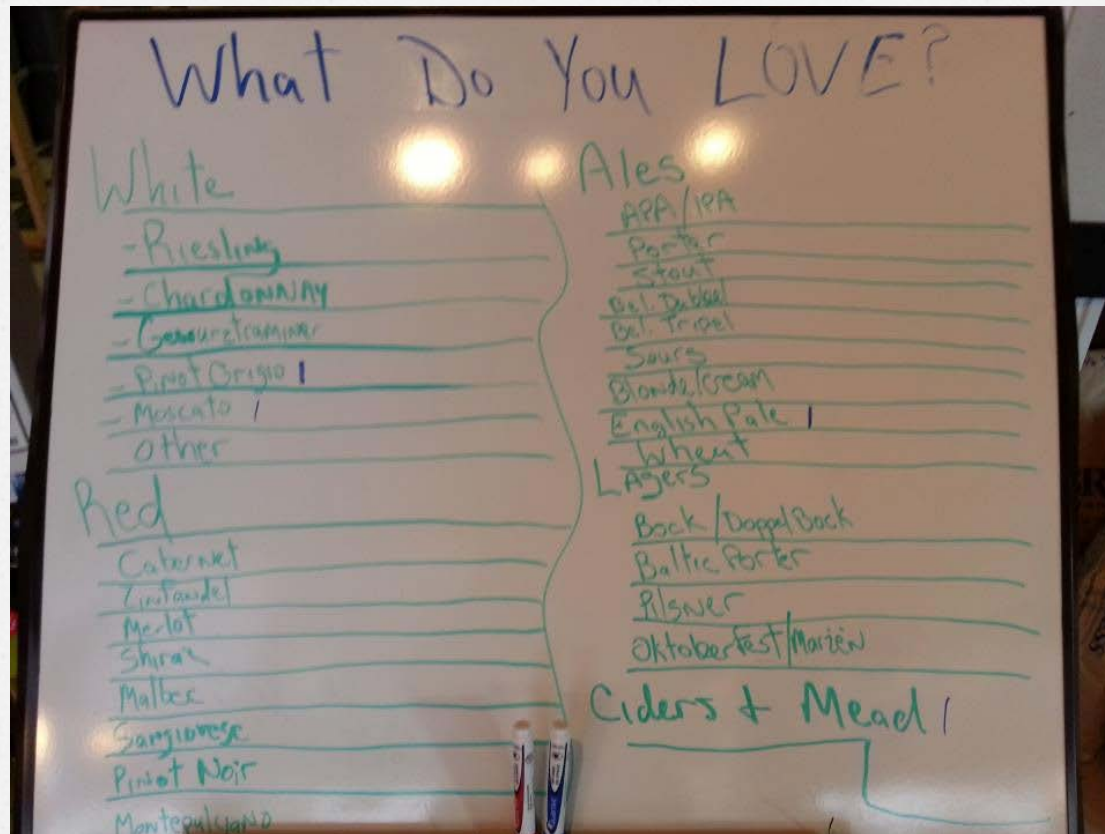 What Do You LOVE?
White
- Riesling
- Chardonnay
- Gewurztraminer
- Pinot Grigio |
- Moscato |
Other
Red
Cabernet
Zinfandel
Merlot
Shiraz
Malbec
Sangiovese
Pinot Noir
Montepulciano
Ales
APA/IPA
Porter
Stout
Bel. Dubbel
Bel. Tripel
Sours
Blonde/Cream
English Pale |
Wheat
Lagers
Bock/DoppelBock
Baltic Porter
Pilsner
Oktoberfest/Marzën
Ciders & Mead |